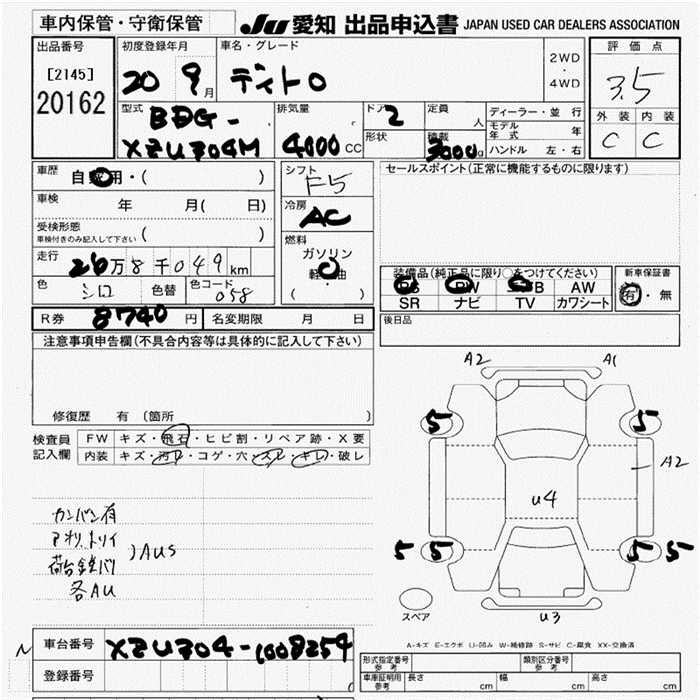 車内保管・守衛保管 JU 愛知 出品申込書 JAPAN USED CAR DEALERS ASSOCIATION
出品番号 初度登録年月 車名・グレード 2WD・4WD 評価点
[2145] 20 9月 3.5
20162
外装 内装
C C
型式 排気量 ドア 2 定員 人 ディーラー・並行
BDG- モデル年式 年
XZU304M 4000cc 形状 積載 3000 ハンドル 左・右
車歴 自家用・( ) シフト F5 セールスポイント(正常に機能するものに限ります)
車検 年 月( 日) 冷房 AC
受検形態 ( )
車検付きのみ記入して下さい
燃料 ガソリン
軽油
( )
走行 26万8千049km 装備品(純正品に限り○をつけてください) 新車保証書
PS PW AW 有・無
SR ナビ TV カワシート
色 シロ 色替 色コード 058
R券 8740円 名変期限 月 日 後日品
注意事項申告欄(不具合内容等は具体的に記入して下さい)
修復歴 有 (箇所 )
検査員記入欄 FW キズ・飛石・ヒビ割・リペア跡・X要
内装 キズ・汚レ・コゲ・穴・スレ・キレ・破レ
A2 A1
5 5
A2
U4
5 5 5 5
スペア U3
カンバン有
アオリ、トリイ
荷台鉄バリ
)AUS
各AU
A-キズ E-エクボ U-凹み W-補修跡 S-サビ C-腐食 XX-交換済
N 車台番号 XZU304-1008254
登録番号
形式指定番号 参考 類別区分番号 参考
車庫証明用 参考 長さ cm 幅 cm 高さ cm